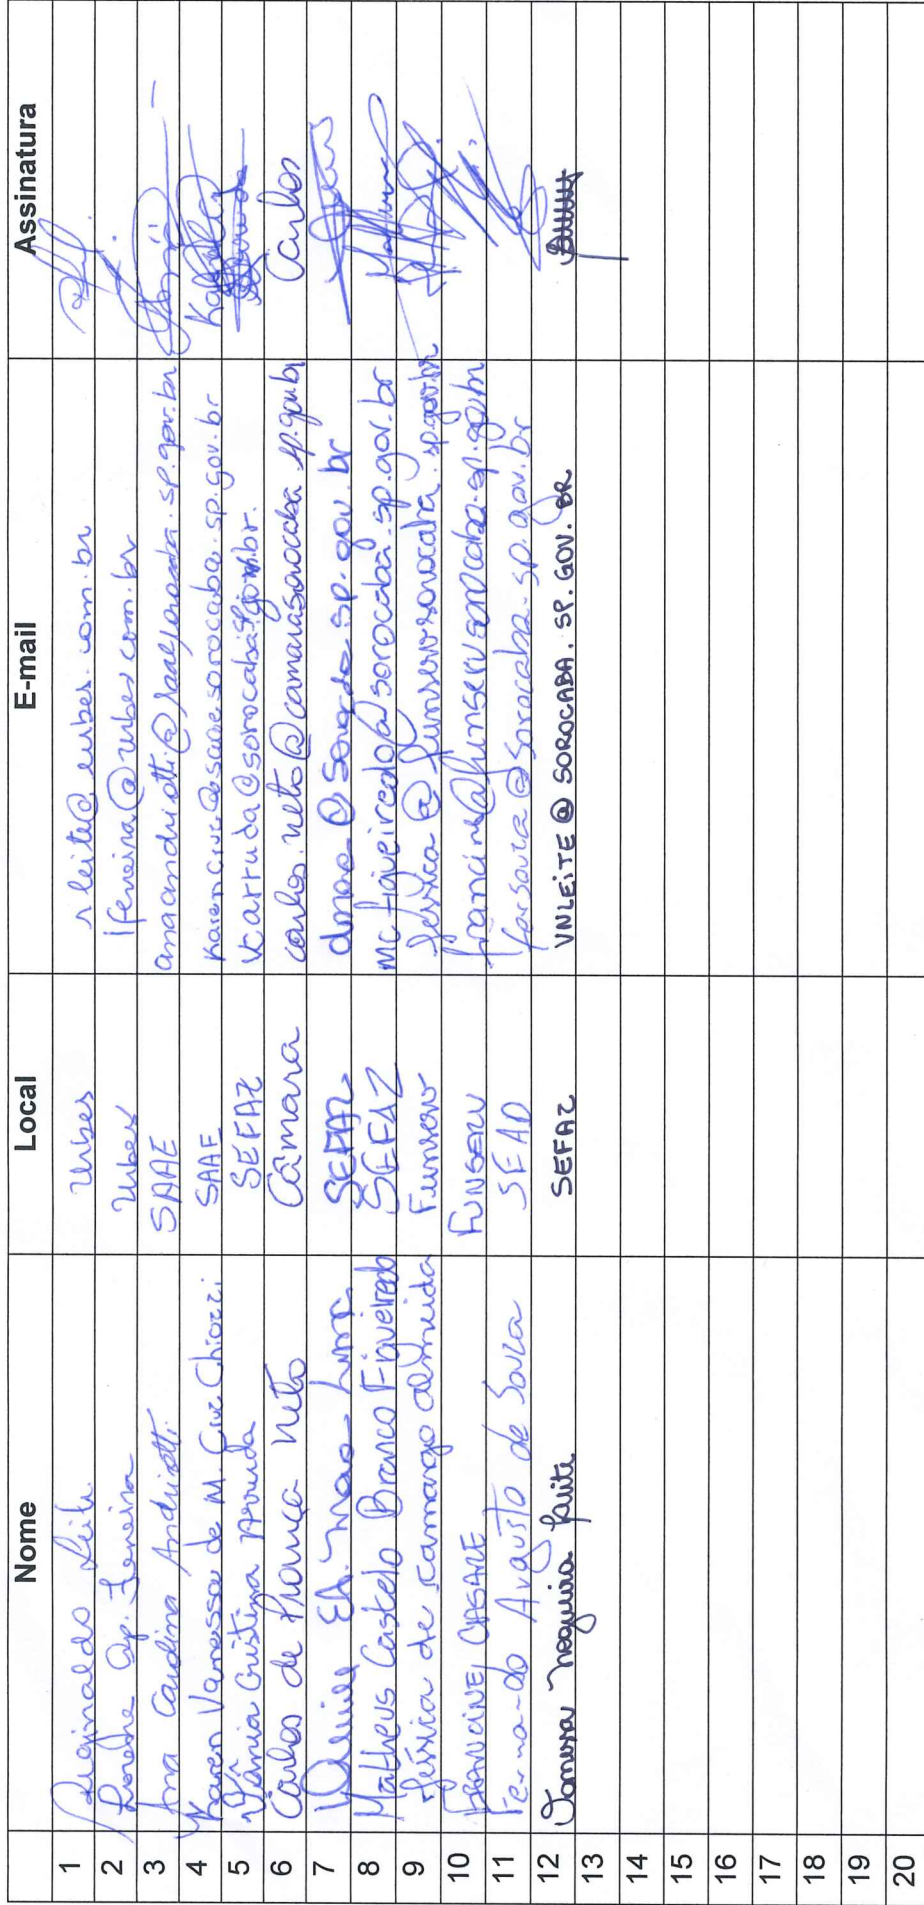 Nome Local E-mail Assinatura
1 Reginaldo Leite Urbes rleite@urbes.com.br
2 Ap. Ferreira Urbes lferreira@urbes.com.br
3 Ana Carolina Andriotti SAAE anaandriotti@saaesorocaba.sp.gov.br
4 Karen Vanessa de M Cruz Chiozzi SAAE karencruz@saaesorocaba.sp.gov.br
5 Vânia Cristina Arruda SEFAZ vcarruda@sorocaba.sp.gov.br.
6 Carlos de Proença Neto Câmara carlos.neto@camarasorocaba.sp.gov.br Carlos
7 Lima SEFAZ .sp.gov.br
8 Matheus Castelo Branco Figueiredo SEFAZ mcfigueiredo@sorocaba.sp.gov.br
9 Jéssica de Camargo Almeida Funserv jessica@funservsorocaba.sp.gov.br
10 FRANCINE CASARE FUNSERV francine@funservsorocaba.sp.gov.br
11 Fernando Augusto de Souza SEAD @sorocaba.sp.gov.br
12 Vanessa Nogueira Leite SEFAZ VNLEITE@SOROCABA.SP.GOV.BR
13
14
15
16
17
18
19
20